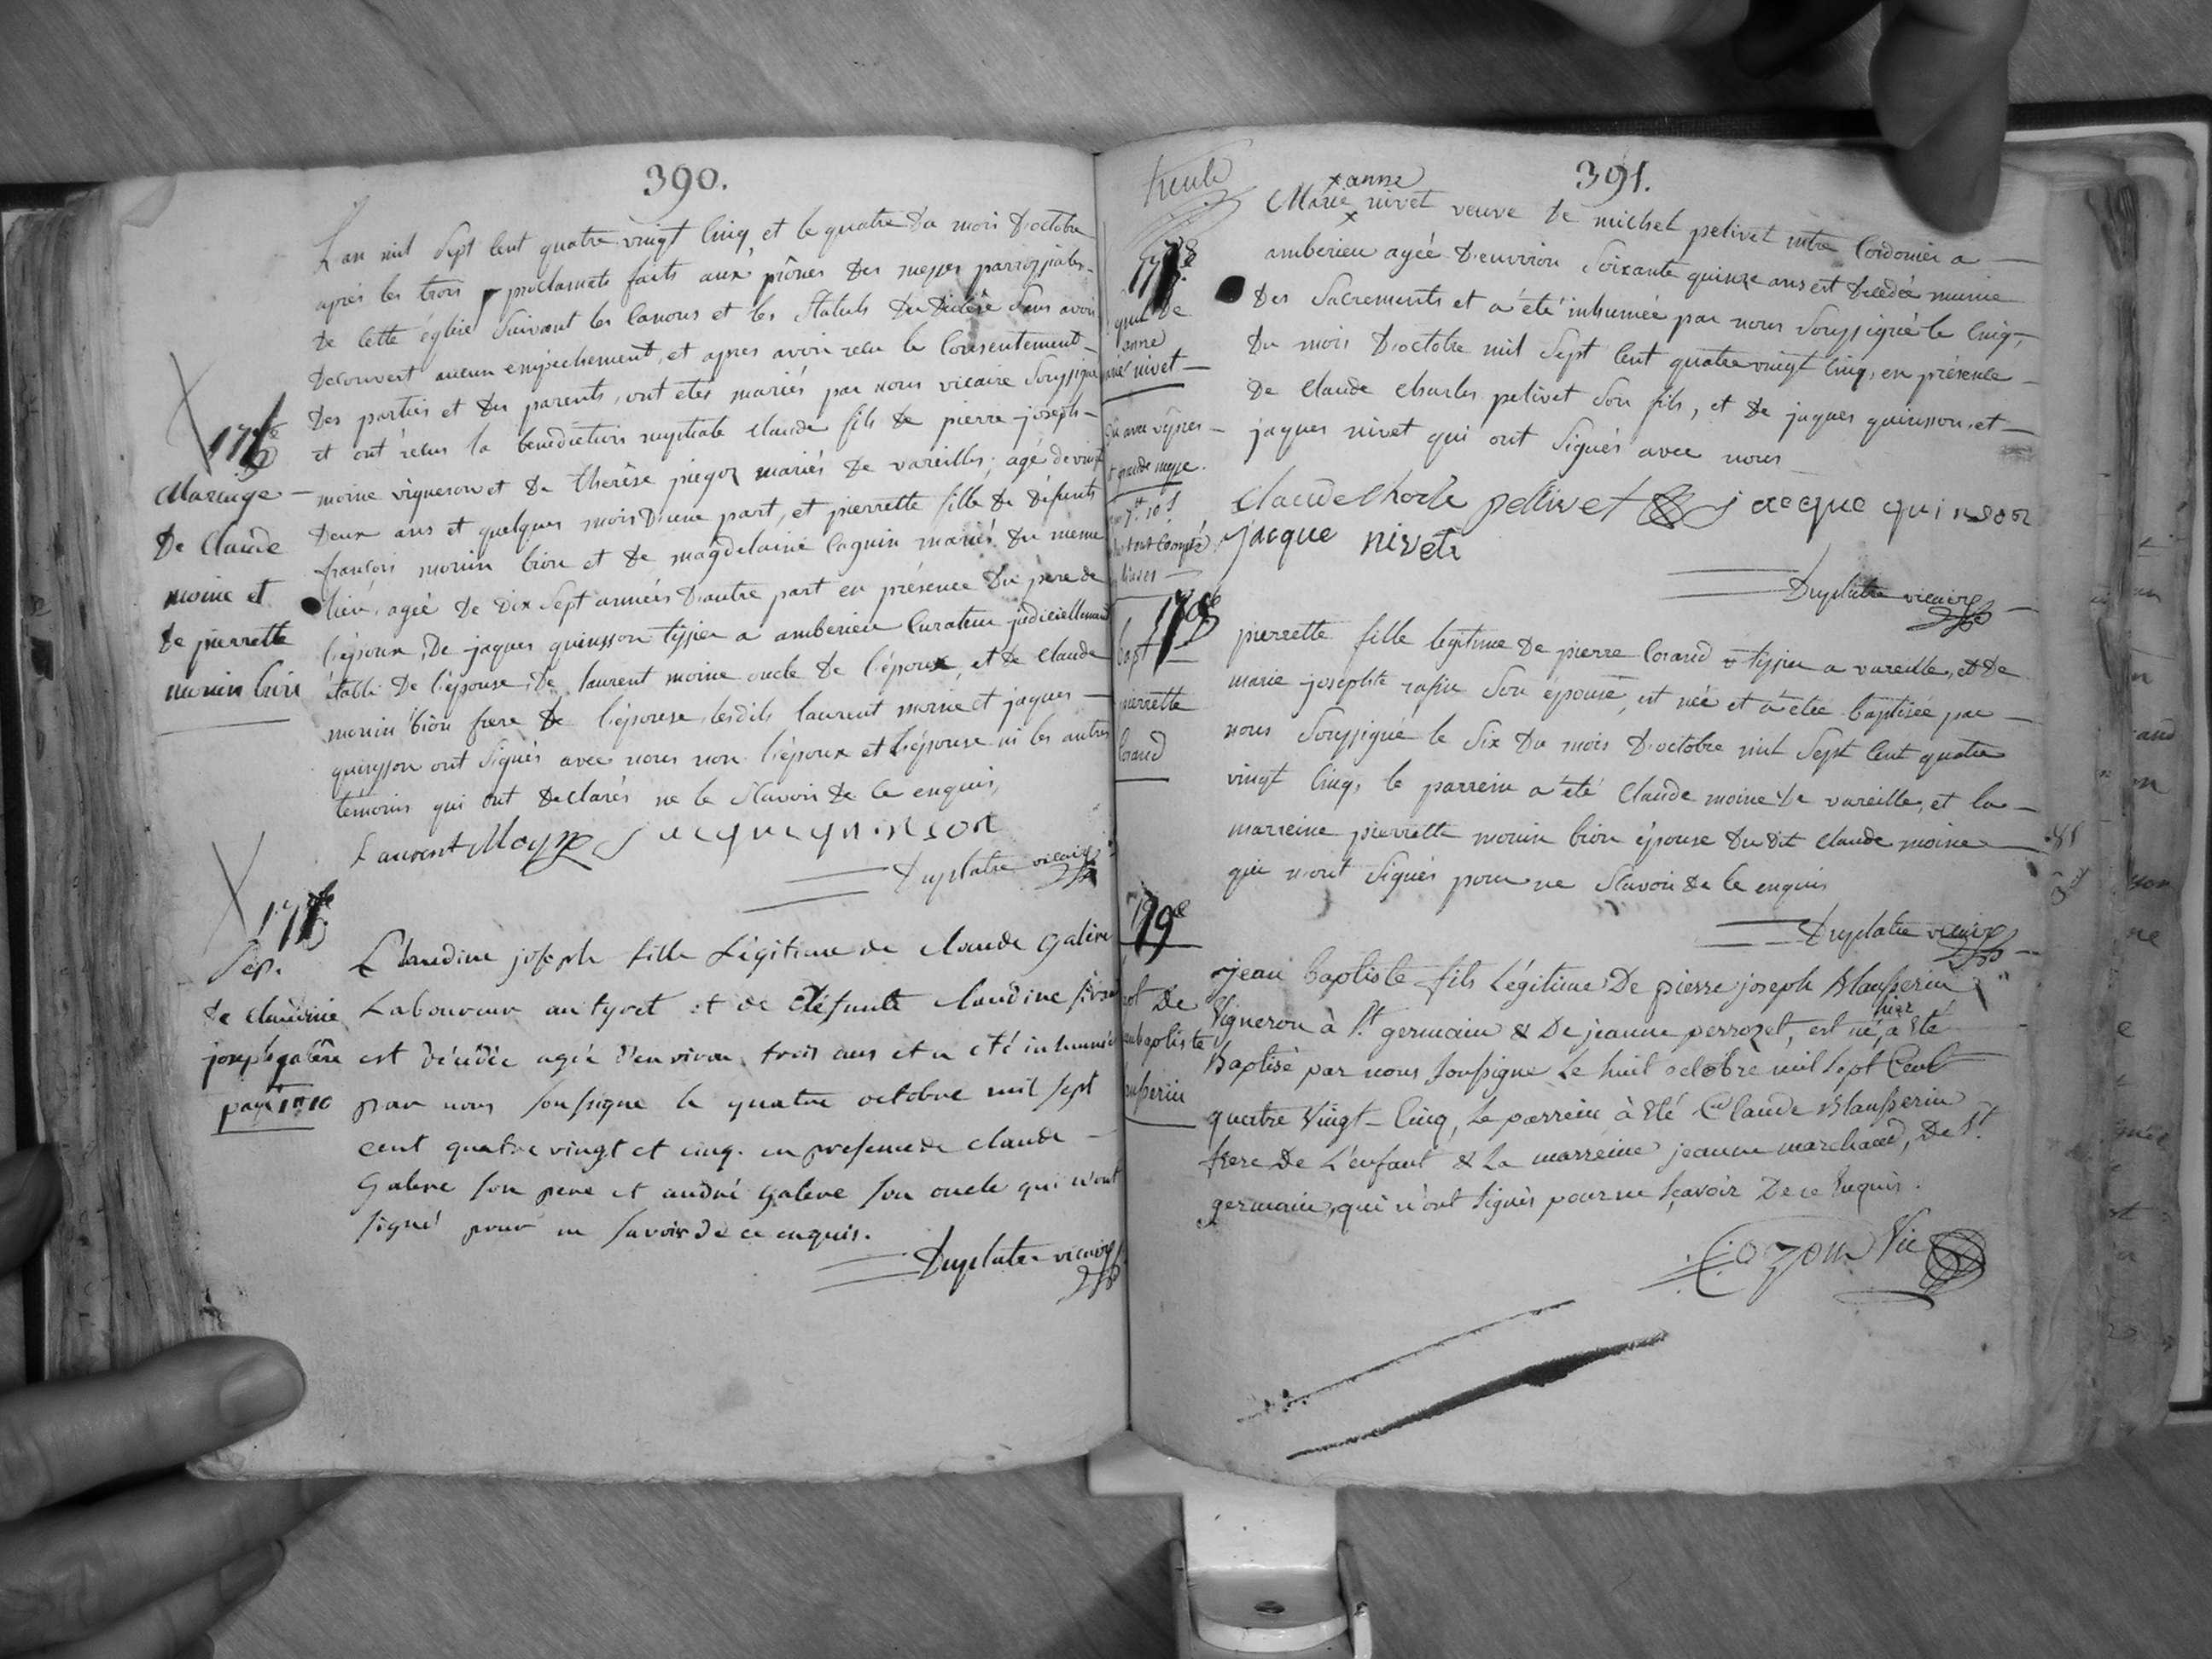 390.
L'an mil sept cent quatre vingt cinq, et le quatre du mois d'octobre
après les trois proclamats faits aux prônes des messes parroissiales
de cette église suivant les canons et les statuts du diocèse sans avoir
decouvert aucun empechement, et apres avoir recu le consentement
des parties et des parents, ont etés mariés par nous vicaire soussigné
et ont réçus la benediction nuptiale claude fils de pierre joseph
moine vigneron et de thérèse pregoz mariés de vareilles, agé de vingt
deux ans et quelques mois d'une part, et pierrette fille de défunts
françois monin bion et de magdelaine cagnin mariés du meme
lieu, agée de dix sept années d'autre part en présence du pere de
l'époux, de jaques quinsson tissier a amberieu curateur judiciellement
établi de l'épouse, de laurent moine oncle de l'époux, et de claude
monin bion frere de l'épouse, lesdits laurent moine et jaques
quinsson ont signés avec nous non l'époux et l'épouse ni les autres
témoins qui ont declarés ne le scavoir de ce enquis,
Laurent Moyne jacque quinson
Duplatre vicaire
Mariage
de claude
moine et
de pierrette
monin bion
Sep.
de claudine
joseph galére
Claudine joseph fille Légitime de claude galere
Laboureur au tyret et de défunte claudine
est décédée agée d'environ trois ans et a été inhumée
par nous soussigne le quatre octobre mil sept
cent quatre vingt et cinq. en presence de claude
Galere son pere et andré galere son oncle qui n'ont
signé pour ne savoir de ce enquis.
Duplatre vicaire
391.
anne
Marie nivet veuve de michel pelivet mtre cordonier a
amberieu agée d'environ soixante quinze ans est decedée munie
des sacrements et a été inhumée par nous soussigné le cinq,
du mois d'octobre mil sept cent quatre vingt cinq, en présence
de claude charles pelivet son fils, et de jaques quinsson, et
jaques nivet qui ont signés avec nous
claude charle pellivet jacque quinson
jacque nivet
Duplatre vicaire
anne
nivet
grande messe
178e
bapt
pierrette
Corand
pierrette fille legitime de pierre Corand tissier a vareille, et de
marie josephte rafin son épouse, est née et a été baptisée par
nous soussigné le six du mois d'octobre mil sept cent quatre
vingt cinq, le parrein a été claude moine de vareille, et la
marreine pierrette monin bion épouse du dit claude moine
qui n'ont signés pour ne scavoir de ce enquis
Duplatre vicaire
179e
jean baptiste fils Légitime De pierre joseph Blanserin
hier
Vigneron à St. germain & De jeanne perrozet, est né, a Eté
Baptisé par nous soussigne Le huit octobre mil sept Cent
quatre Vingt-Cinq, Le parrein à Eté Claude Blanserin
frere De L'enfant & La marreine jeanne marchand, De St.
germain, qui n'ont signés pour ne sçavoir De ce Enquis.
Cozon Vic